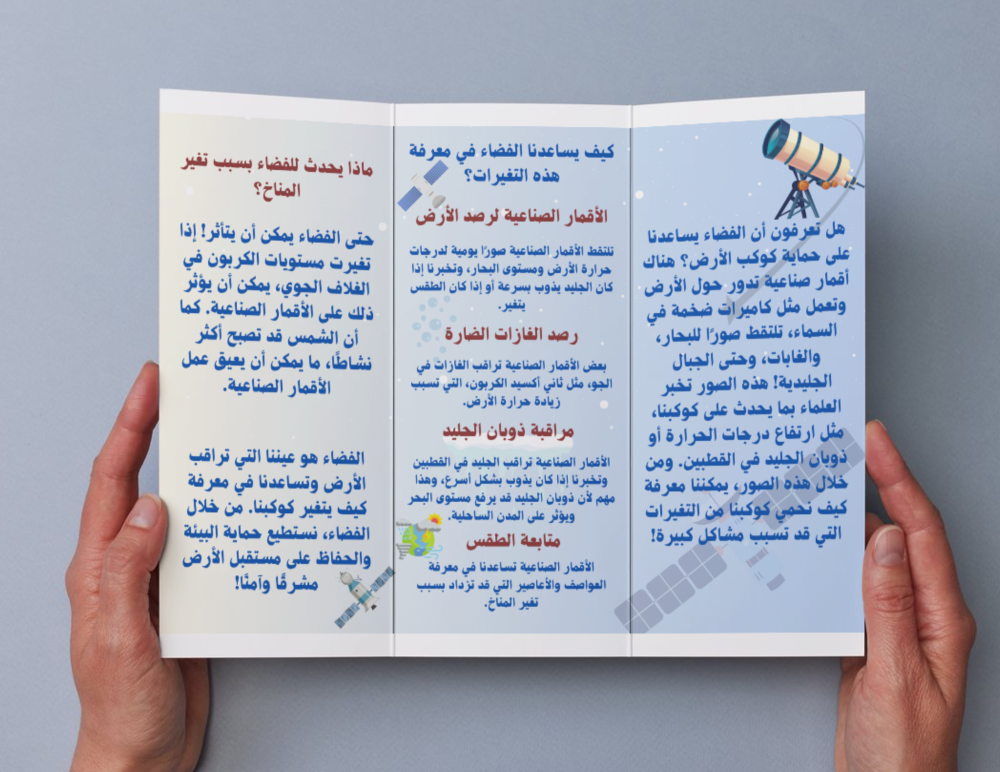 هل تعرفون أن الفضاء يساعدنا
على حماية كوكب الأرض؟ هناك
أقمار صناعية تدور حول الأرض
وتعمل مثل كاميرات ضخمة في
السماء، تلتقط صورًا للبحار،
والغابات، وحتى الجبال
الجليدية! هذه الصور تخبر
العلماء بما يحدث على كوكبنا،
مثل ارتفاع درجات الحرارة أو
ذوبان الجليد في القطبين. ومن
خلال هذه الصور، يمكننا معرفة
كيف نحمي كوكبنا من التغيرات
التي قد تسبب مشاكل كبيرة!
كيف يساعدنا الفضاء في معرفة
هذه التغيرات؟
الأقمار الصناعية لرصد الأرض
تلتقط الأقمار الصناعية صورًا يومية لدرجات
حرارة الأرض ومستوى البحار، وتخبرنا إذا
كان الجليد يذوب بسرعة أو إذا كان الطقس
يتغير.
رصد الغازات الضارة
بعض الأقمار الصناعية تراقب الغازات في
الجو، مثل ثاني أكسيد الكربون، التي تسبب
زيادة حرارة الأرض.
مراقبة ذوبان الجليد
الأقمار الصناعية تراقب الجليد في القطبين
وتخبرنا إذا كان يذوب بشكل أسرع، وهذا
مهم لأن ذوبان الجليد قد يرفع مستوى البحر
ويؤثر على المدن الساحلية.
متابعة الطقس
الأقمار الصناعية تساعدنا في معرفة
العواصف والأعاصير التي قد تزداد بسبب
تغير المناخ.
ماذا يحدث للفضاء بسبب تغير
المناخ؟
حتى الفضاء يمكن أن يتأثر! إذا
تغيرت مستويات الكربون في
الغلاف الجوي، يمكن أن يؤثر
ذلك على الأقمار الصناعية. كما
أن الشمس قد تصبح أكثر
نشاطًا، ما يمكن أن يعيق عمل
الأقمار الصناعية.
الفضاء هو عيننا التي تراقب
الأرض وتساعدنا في معرفة
كيف يتغير كوكبنا. من خلال
الفضاء، نستطيع حماية البيئة
والحفاظ على مستقبل الأرض
مشرقًا وآمنًا!